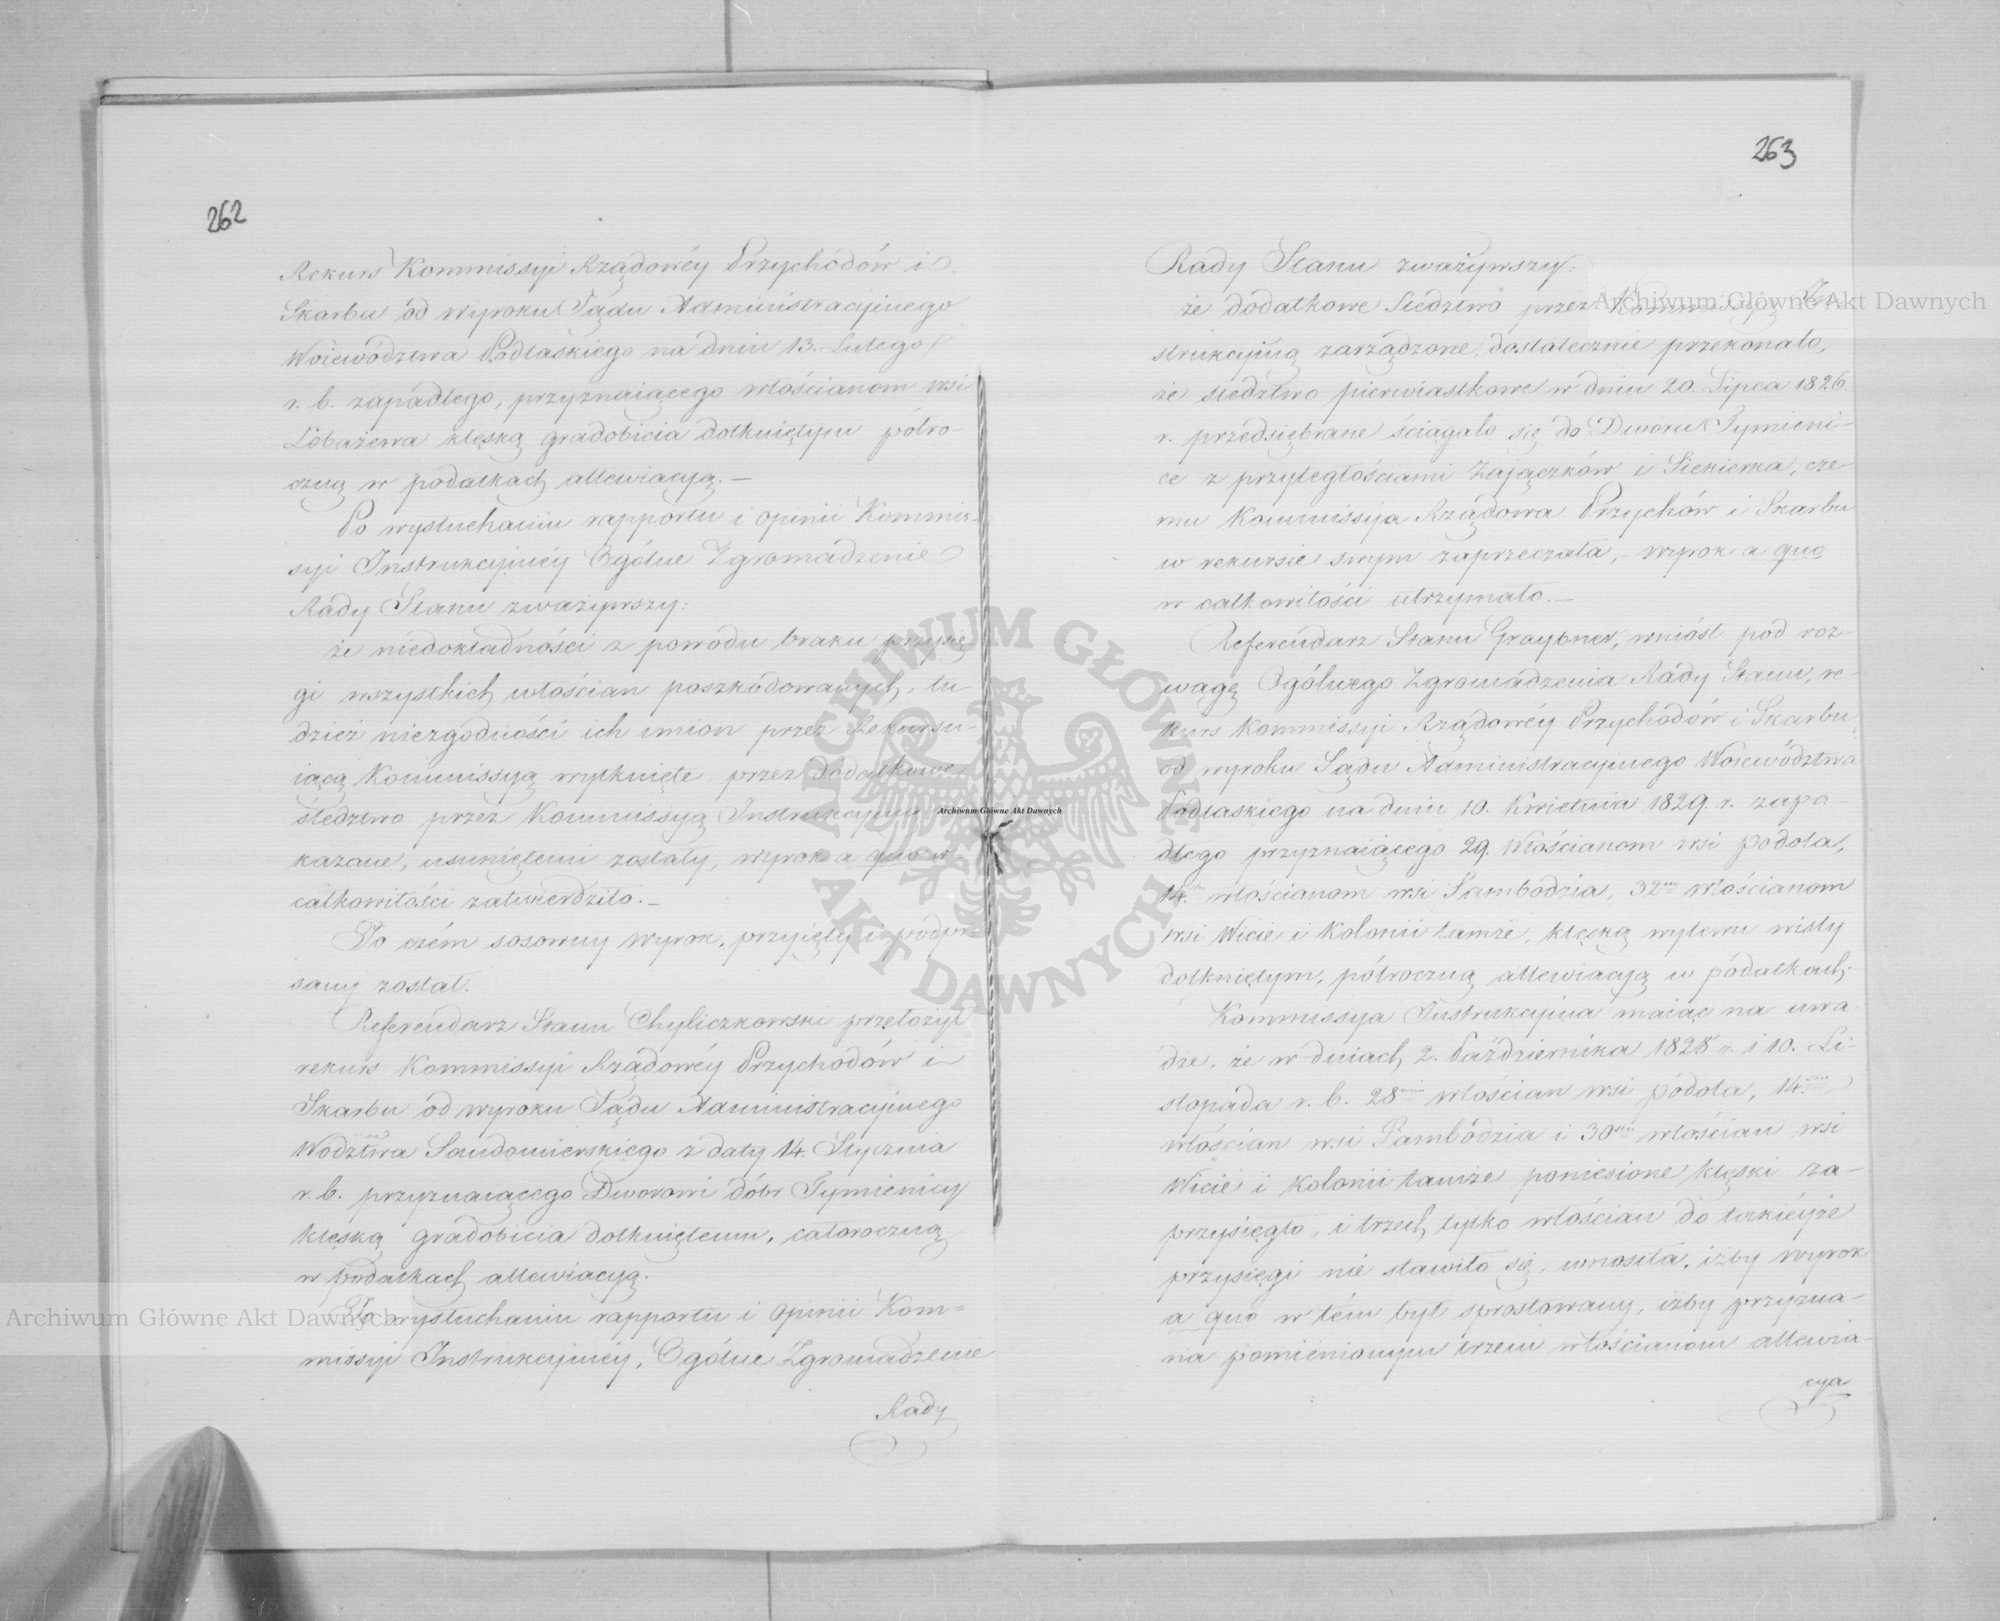 262
Rekurs Kommissyi Rządowéy Przychodów i
Skarbu od wyroku Sądu Administracyinego
Woiewództwa Podlaskiego na dniu 13. Lutego
r. b. zapadłego, przyznaiącego włościanom wsi
klęską gradobicia dotkniętym półro-
czną w podatkach allewiacyą. —
Po wysłuchaniu rapportu i opinii Kommis-
syi Instrukcyinéy Ogólne Zgromadzenie
Rady Stanu zważywszy:
że niedokładności z powodu braku przysię-
gi wszystkich włościan poszkodowanych, tu
dzież niezgodności ich imion przez Rekursu-
iącą Kommissyą wytknięte, przez dodatkowe
śledztwo przez Kommissyą Instrukcyiną
kazane, usuniętemi zostały, wyrok a quo w
całkowitości zatwierdziło. —
Po czém sosowny wyrok, przyięty i podpi
sany został.
Referendarz Stanu Chyliczkowski przełożył
rekurs Kommissyi Rządowéy Przychodów i
Skarbu od wyroku Sądu Administracyinego
Wodztwa Sandomierskiego z daty 14. Stycznia
r. b. przyznaiącego Dworowi dóbr Tymienicy
klęską gradobicia dotkniętemu, całoroczną
w podatkach allewiacyą.
Po wysłuchaniu rapportu i opinii Kom=
missyi Instrukcyinéy, Ogólne Zgromadzenie
Rady
263
Rady Stanu zważywszy:
że dodatkowe śledztwo przez Kommissyą In-
strukcyiną zarządzone, dostatecznie przekonało,
że śledztwo pierwiastkowe w dniu 20. Lipca 1826.
r. przedsiębrane ściągało się do Dworu Tymieni-
ce z przyległościami Zajączków i Siekierka, cze-
mu Kommissya Rządowa Przychów i Skarbu
w rekursie swym zaprzeczała, – wyrok a quo
w całkowitości utrzymało. —
Referendarz Stanu Graybner, wniósł pod roz-
wagę Ogólnego Zgromadzenia Rady Stanu, re-
kurs Kommissyi Rządowéy Przychodów i Skarbu
od wyroku Sądu Administracyinego Woiewództwa
Podlaskiego na dniu 10. Kwietnia 1829. r. zapa-
dłego przyznaiącego 29. Włościanom wsi Podola,
14. włościanom wsi Sambodzia, 32 włościanom
wsi Wicie i Kolonii tamże, klęską wylewu wisły
dotkniętym, półroczną allewiacyą w podatkach.
Kommissya Instrukcyina maiąc na uwa
dze, że w dniach 2. Października 1828 r. i 10. Li-
stopada r. b. 28 włościan wsi Podola, 14.
włościan wsi Sambodzia i 30 włościan wsi
Wicie i Kolonii tamże poniesione klęski za-
przysięgło, i trzech tylko włościan do takiéyże
przysięgi nie stawiło się, wnosiła, iżby wyrok
a quo w tém był sprostowany, iżby przyzna-
na pomienionym trzem włościanom allewia-
cya
Archiwum Główne Akt Dawnych
Archiwum Główne Akt Dawnych
Archiwum Główne Akt Dawnych
ARCHIWUM GŁÓWNE AKT DAWNYCH